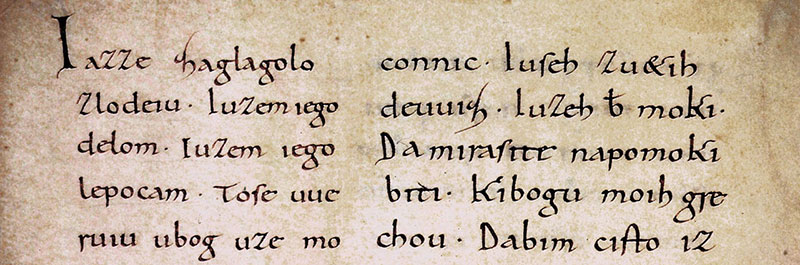 Iazze zaglagolo
zlodeiu · Iuzem iego
delom · Iuzem iego
lepocam · Tose uue
ruiu ubog uze mo
connic · Iuseh zu&ih
deuuiz · Iuzeh b̄ moki ·
Da mirasite napomoki
biti · Kibogu moih gre
chou · Dabim cisto iz